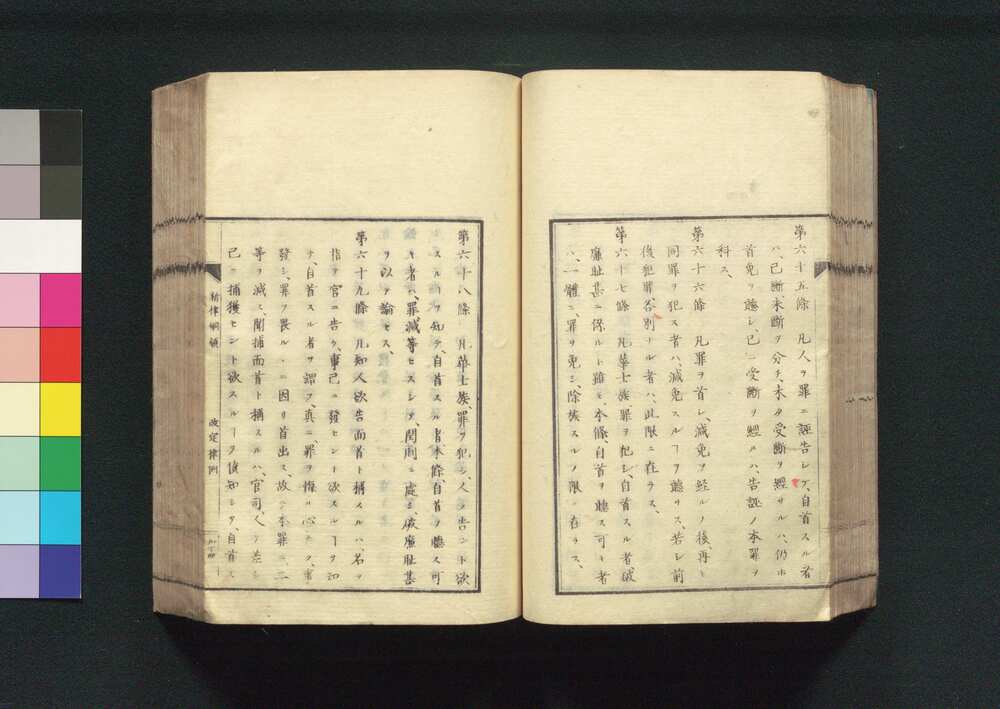 第六十五條 凡人ヲ罪ニ誣告シテ、自首スル者
ハ、已断未断ヲ分チ、未タ受断ヲ經サルハ、仍ホ
首免ヲ聽シ、已ニ受断ヲ經ルハ、告誣ノ本罪ヲ
科ス、
第六十六條 凡罪ヲ首シ、減免ヲ経ルノ後再ヒ
同罪ヲ犯ス者ハ、減免スルヿヲ聽サス、若シ前
後犯罪各別ナル者ハ、此限ニ在ラス、
第六十七條 凡華士族罪ヲ犯シ、自首スル者破
廉耻甚ニ係ルト雖モ、本條、自首ヲ聴ス可キ者
ハ、一體ニ罪ヲ免シ、除族スルノ限ニ在ラス、
第六十八條 凡華士族、罪ヲ犯シ、人ノ告ント欲
スルヲ知テ、自首スル者本條、自首ヲ聴ス可
キ者ハ、罪減等セスシテ、閏刑ニ處シ、破廉耻甚
ヲ以テ論セス、
第六十九條 凡知人欲告而首ト稱スルハ、名ヲ
指ヲ官ニ告ケ、事已ニ發セント欲スルヿヲ知
テ、自首スル者ヲ謂フ、真ニ罪ヲ悔ル心ナク、事
發シ、罪ヲ畏ルヽニ因リ首出ス、故ニ本罪ニ二
等ヲ減ス、聞捕而首ト稱スルハ、官司、人ヲ差シ
已ニ捕獲セント欲スルヿヲ偵知シテ、自首ス
新律綱領 改定律例